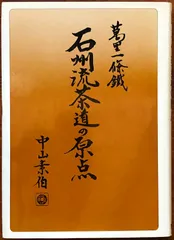 萬里一條鐵
石州流茶道の原点
中山素伯